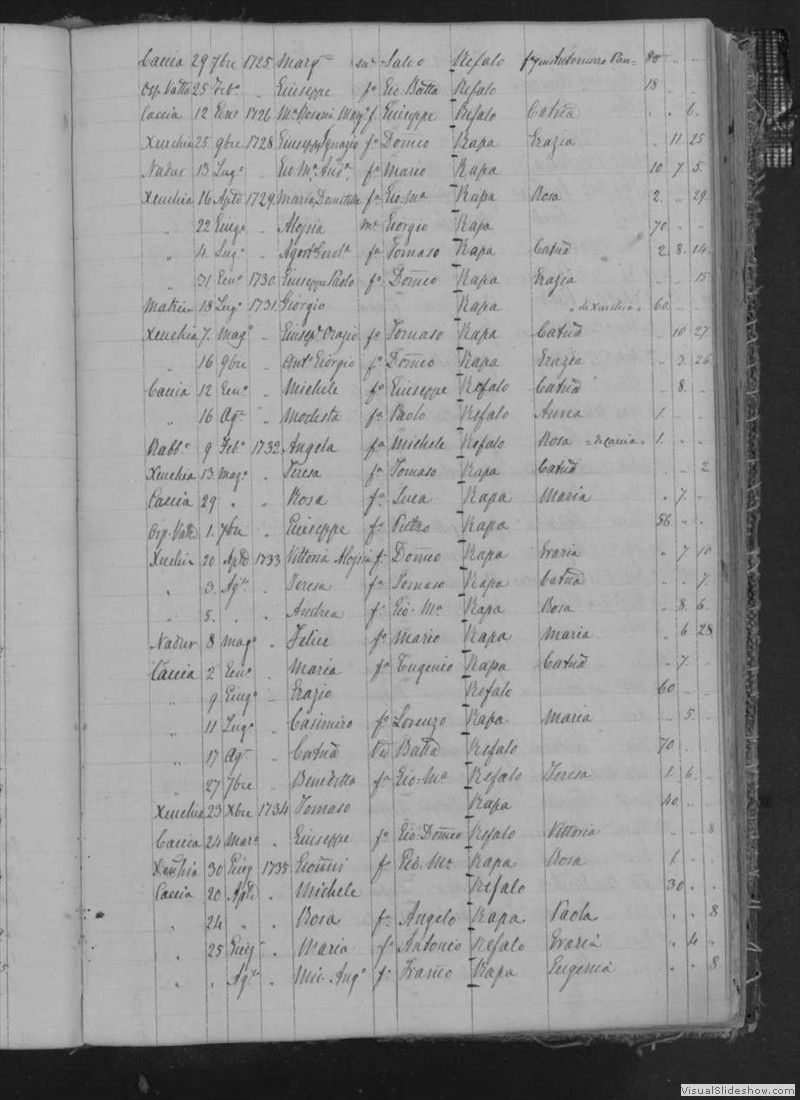 Caccia 29 7bre 1725 Marg.a m.e Salvo Refalo fq.m Antonino 80 " "
Osp. Vatta 25 Feb.o " Giuseppe f.o Gio. Batta Refalo 18
Caccia 12 Gen.o 1726 M.a Rosaria f. Giuseppe Refalo Catna " " 6
Xeuchia 25 9bre 1728 Giuseppe Ignazio f.o Domco Rapa Grazia " 11 25
Nadur 13 Lug.o " Gio M.a And.a f.o Mario Rapa 10 7 5
Xeuchia 16 Aple 1729 Maria f.a Gio. M.a Rapa Rosa 2 " 29
" 22 Giug.o " Aloysia m.e Giorgio Rapa 70 " "
" 4 Lug.o " f.a Tomaso Rapa Catna 2 8 14
" 31 Gen.o 1730 Giuseppe Paolo f.o Domco Rapa Grazia " " 15
Matrice 18 Lug.o 1731 Giorgio Rapa " di Xeuchia " 60
Xeuchia 7 Mag.o " Giusep.e Orazio f.o Tomaso Rapa Catna " 10 27
" 16 9bre " Ant.o Giorgio f.o Domco Rapa Grazia " 3 26
Caccia 12 Gen.o " Michele f.o Giuseppe Refalo Catna " 8 "
" 16 Ag.o " Modesta f.a Paolo Refalo Anna 1 " "
Rabb.o 9 Feb.o 1732 Angela f.a Michele Refalo Rosa " di Caccia " 1 " "
Xeuchia 13 Mag.o " Teresa f.a Tomaso Rapa Catna " " 2
Caccia 29 " " Rosa f.a Luca Rapa Maria " 7 "
Osp. Vatta 1 7bre " Giuseppe f.o Pietro Rapa 56 " "
Xeuchia 20 Aple 1733 Vittoria Aloysia f. Domco Rapa Grazia " 7 10
" 3 Ag.o " Teresa f.a Tomaso Rapa Catna " " 7
" 5 " " Andrea f.o Gio M.a Rapa Rosa " 8 6
Nadur 8 Mag.o " Felice f.o Mario Rapa Maria " 6 28
Caccia 2 Gen.o " Maria f.a Eugenio Rapa Catna " 7 "
" 9 Giug.o " Grazio Refalo 60 " "
" 11 Lug.o " Casimiro f.o Lorenzo Rapa Maria " 5 "
" 17 Ag.o " Catna Batta Refalo 70 " "
" 27 7bre " Benedetta f.a Gio. M.a Refalo Teresa 1 6 "
Xeuchia 23 Xbre 1734 Tomaso Rapa 40 " "
Caccia 24 Mar.o " Giuseppe f.o Gio Domco Refalo Vittoria " " 8
Xeuchia 30 Giug 1735 Gionni f.o Gio. M.a Rapa Rosa 1 " "
Caccia 20 Aple " Michele Refalo 30 " "
" 24 " " Rosa f.a Angelo Rapa Paola " " 8
" 25 Giug.o " Maria f.a Antonio Refalo Grazia " 4 "
" " Ag.o " Mic. Ang.o f. Franco Rapa Eugenia " " 8
VisualSlideshow.com